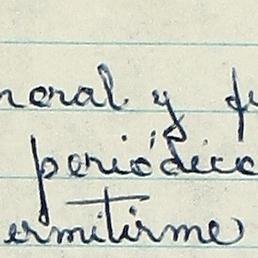 neral y fu
periódico
ermitirme